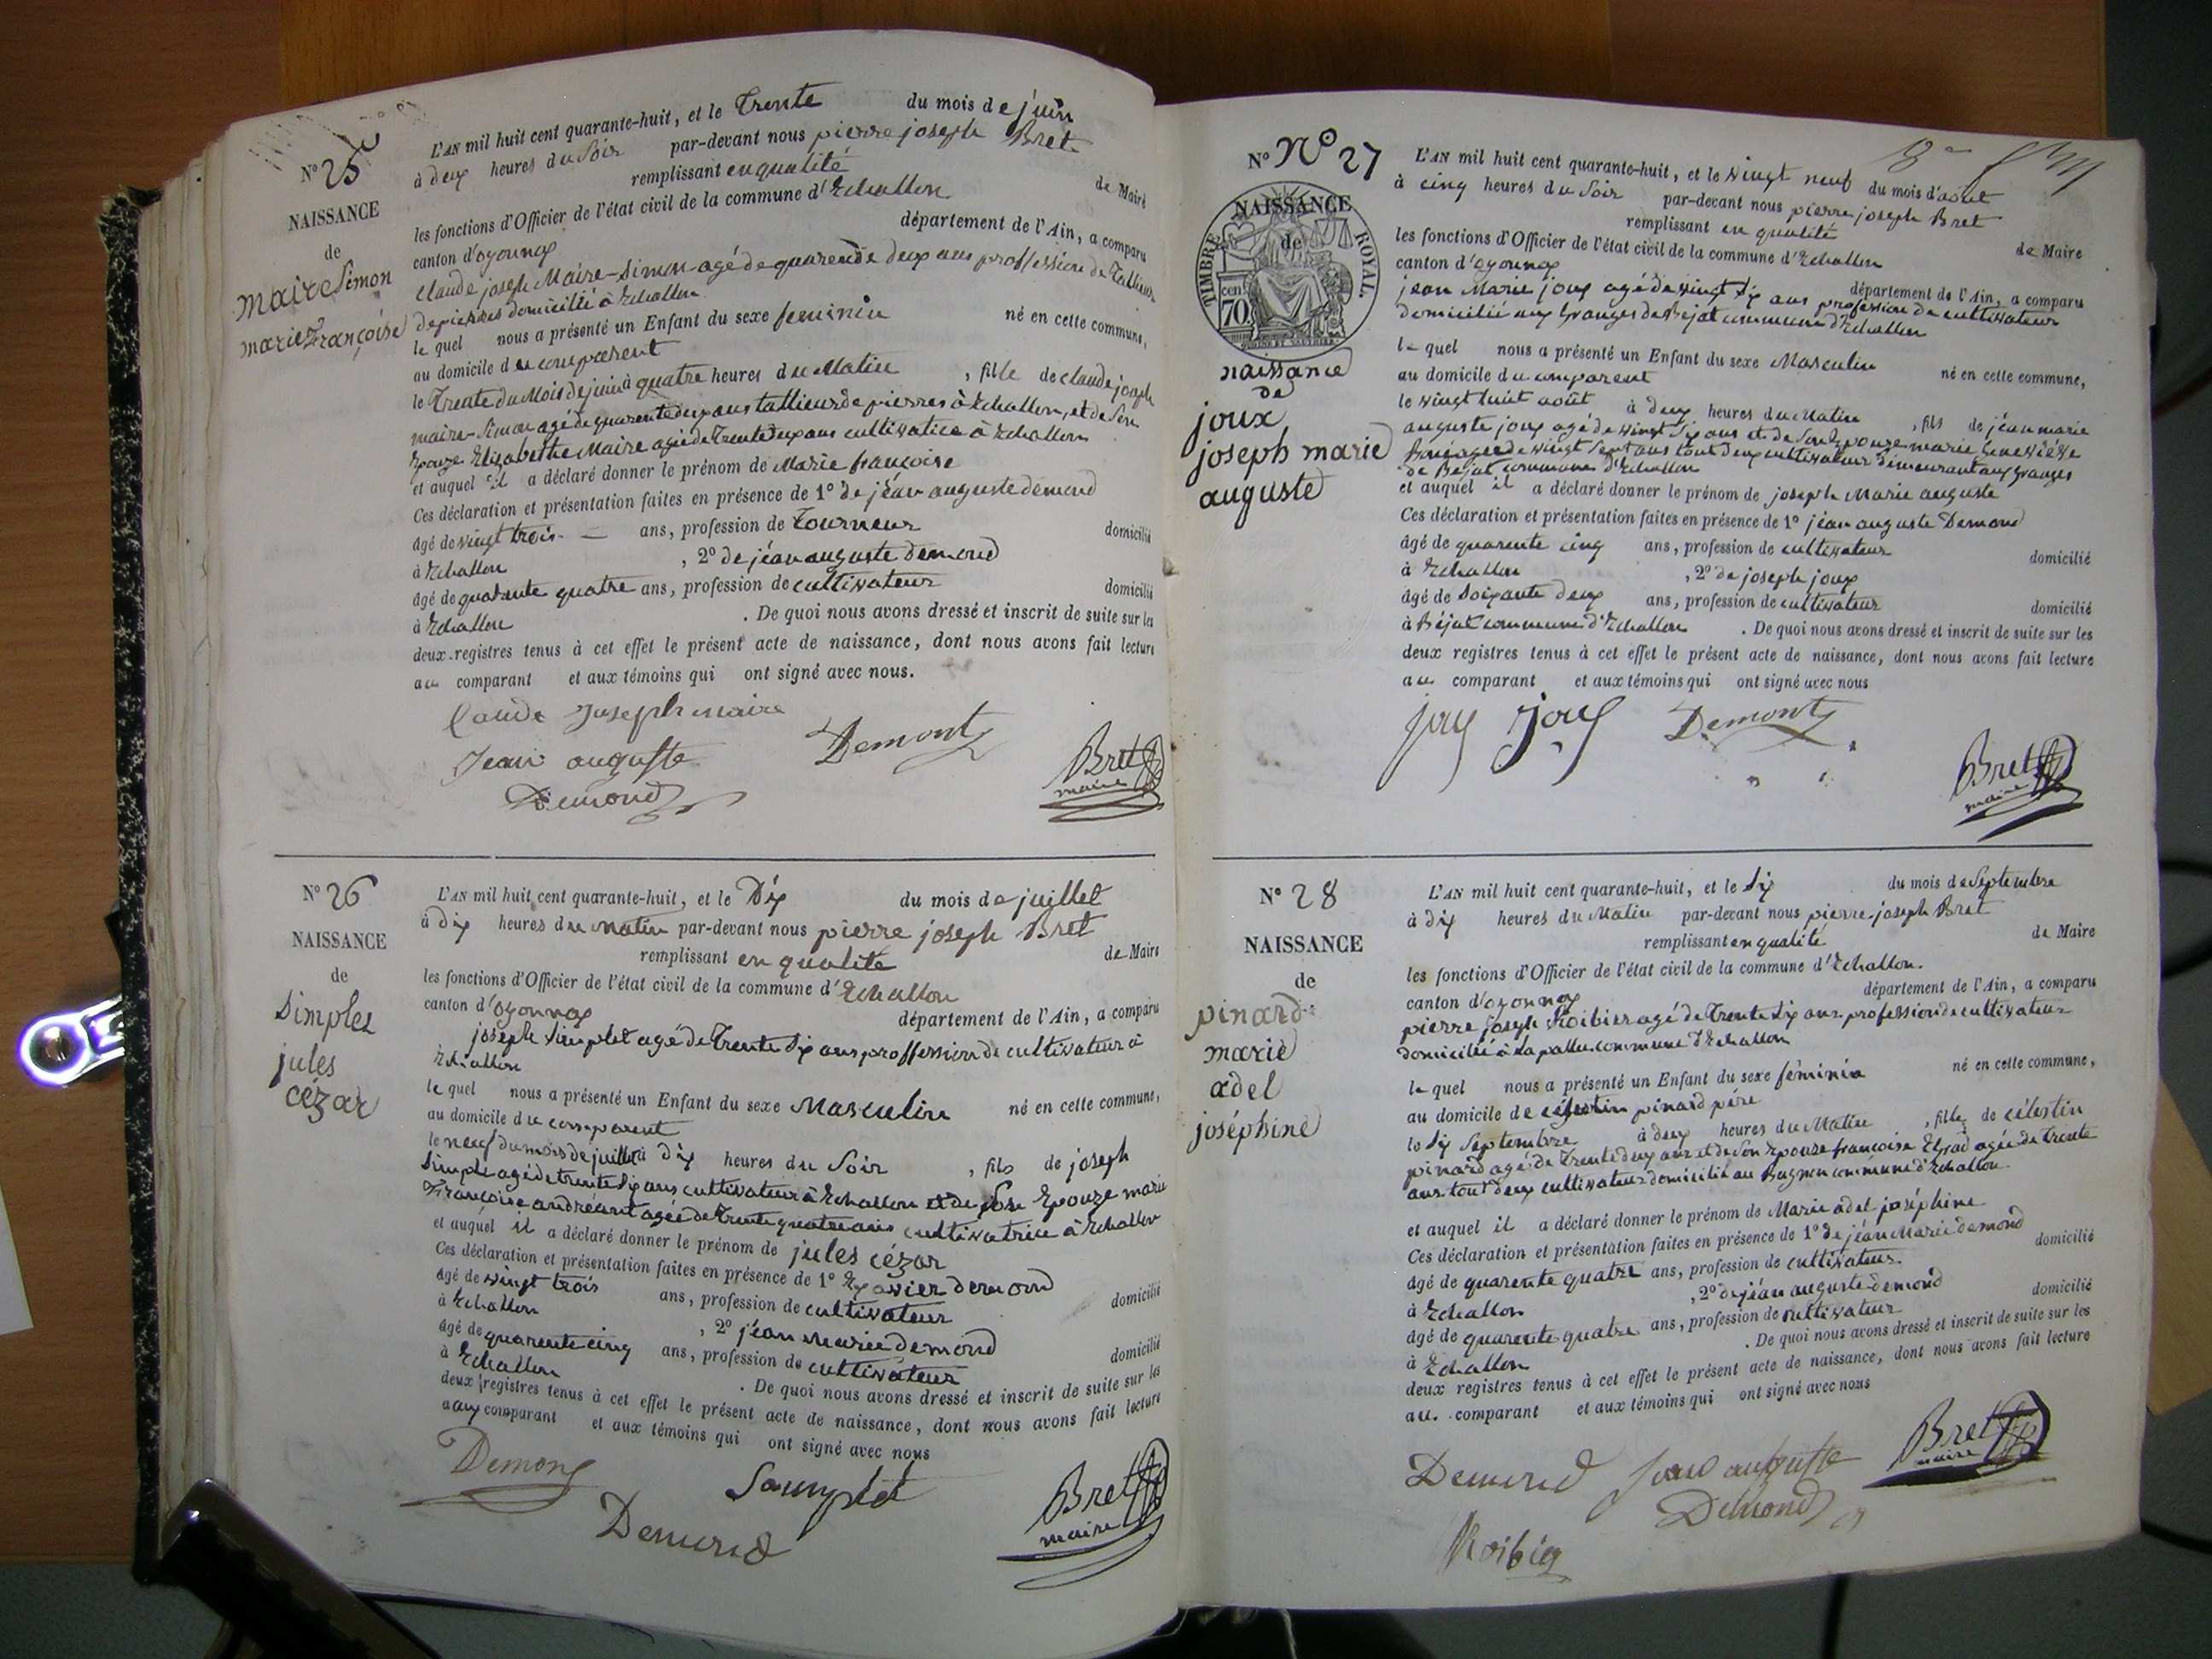 N° 25
NAISSANCE
de
maire Simon
marie Françoise
L'AN mil huit cent quarante-huit, et le Trente du mois de juin
à deux heures du Soir par-devant nous pierre joseph Bret
remplissant en qualité de Maire
les fonctions d'Officier de l'état civil de la commune d'Echallon
canton d'oyonnax département de l'Ain, a comparu
claude joseph Maire-Simon agé de quarente deux ans proffession de Tallieur
de pierres domicilié à Echallon
le quel nous a présenté un Enfant du sexe feminin né en cette commune,
au domicile du comparent
le Trente du Mois de juin à quatre heures du Matin , fille de claude joseph
maire-Simon agé de quarente deux ans tallieur de pierres à Echallon, et de Son
Epouze Elizabethe Maire agée de Trente deux ans cultivatice à Echallon
et auquel il a déclaré donner le prénom de Marie françoise
Ces déclaration et présentation faites en présence de 1° de jéan auguste demond
âgé de vingt trois — ans, profession de Tourneur domicilié
à Echallon , 2° de jéan auguste demond
âgé de quarante quatre ans, profession de cultivateur domicilié
à Echallon . De quoi nous avons dressé et inscrit de suite sur les
deux registres tenus à cet effet le présent acte de naissance, dont nous avons fait lecture
au comparant et aux témoins qui ont signé avec nous.
Claude Joseph maire
Jean auguste Demont
Demond
Bret
maire
N° 26
NAISSANCE
de
Simplet
jules
cézar
L'AN mil huit cent quarante-huit, et le Dix du mois de juillet
à dix heures du matin par-devant nous pierre joseph Bret
remplissant en qualité de Maire
les fonctions d'Officier de l'état civil de la commune d'Echallon
canton d'oyonnax département de l'Ain, a comparu
joseph Simplet agé de trente Six ans proffession de cultivateur à
Echallon
le quel nous a présenté un Enfant du sexe Masculin né en cette commune,
au domicile du comparent
le neuf du mois de juillet à dix heures du Soir , fils de joseph
Simple agé de trente Six ans cultivateur à Echallon et de Son Epouze marie
Françoise andréant agée de Trente quatre ans cultivatrice à Echallon
et auquel il a déclaré donner le prénom de jules cézar
Ces déclaration et présentation faites en présence de 1° Exavier demond
âgé de vingt trois ans, profession de cultivateur domicilié
à Echallon , 2° jéan marie demond
âgé de quarente cinq ans, profession de cultivateur domicilié
à Echallon . De quoi nous avons dressé et inscrit de suite sur les
deux registres tenus à cet effet le présent acte de naissance, dont nous avons fait lecture
aux comparant et aux témoins qui ont signé avec nous
Demond
Demond
Bret
maire
N° N° 27
NAISSANCE
de
TIMBRE ROYAL.
70 cent
naissance
de
joux
joseph marie
auguste
L'AN mil huit cent quarante-huit, et le vingt neuf du mois d'août
à cinq heures du Soir par-devant nous pierre joseph Bret
remplissant en qualité de Maire
les fonctions d'Officier de l'état civil de la commune d'Echallon
canton d'oyonnax département de l'Ain, a comparu
jean Marie joux agé de vingt Six ans profession de cultivateur
domicilié aux Granges de Béjat commune d'Echallon
le quel nous a présenté un Enfant du sexe Masculin né en cette commune,
au domicile du comparent
le vingt huit août à deux heures du Matin , fils de jéan marie
auguste joux agé de vingt Six ans et de Son Epouze marie Geneviève
agée de vingt Sept ans tout deux cultivateur demeurant aux Granges
de Béjat commune d'Echallon
et auquel il a déclaré donner le prénom de joseph Marie auguste
Ces déclaration et présentation faites en présence de 1° jéan auguste Demond
âgé de quarente cinq ans, profession de cultivateur domicilié
à Echallon , 2° de joseph joux
âgé de Soixante deux ans, profession de cultivateur domicilié
à Béjat commune d'Echallon . De quoi nous avons dressé et inscrit de suite sur les
deux registres tenus à cet effet le présent acte de naissance, dont nous avons fait lecture
au comparant et aux témoins qui ont signé avec nous
joux joux Demont
Bret
maire
N° 28
NAISSANCE
de
pinard
marie
adel
joséphine
L'AN mil huit cent quarante-huit, et le Six du mois de Septembre
à dix heures du Matin par-devant nous pierre-joseph Bret
remplissant en qualité de Maire
les fonctions d'Officier de l'état civil de la commune d'Echallon.
canton d'oyonnax département de l'Ain, a comparu
pierre joseph Roibier agé de Trente Six ans profession de cultivateur
domicilié à Lapallu commune d'Echallon
le quel nous a présenté un Enfant du sexe féminin né en cette commune,
au domicile de célestin pinard père
le Six Septembre à deux heures du Matin , fille de célestin
pinard agé de Trente deux ans et de Son Epouze françoise agée de Trente
ans tout deux cultivateur domicilié au Bugnon commune d'Echallon
et auquel il a déclaré donner le prénom de Marie adel joséphine
Ces déclaration et présentation faites en présence de 1° de jéan Marie demond
âgé de quarente quatre ans, profession de cultivateur. domicilié
à Echallon , 2° de jéan auguste demond
âgé de quarente quatre ans, profession de cultivateur domicilié
à Echallon . De quoi nous avons dressé et inscrit de suite sur les
deux registres tenus à cet effet le présent acte de naissance, dont nous avons fait lecture
au comparant et aux témoins qui ont signé avec nous
Demond Jean auguste
Demond
Bret
maire
Roibier